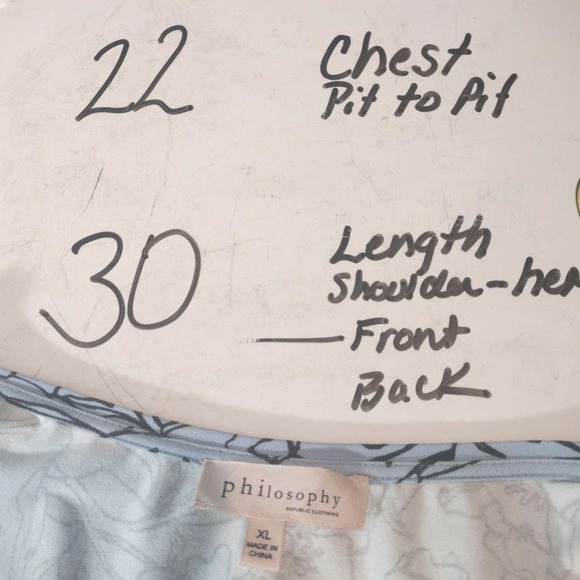 22 Chest
Pit to Pit
30 Length
Shoulder-hem
Front
Back
philosophy
REPUBLIC CLOTHING
XL
MADE IN
CHINA